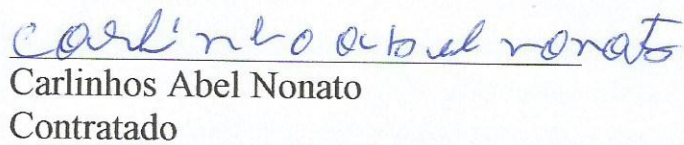 carlinho abel nonato
Carlinhos Abel Nonato
Contratado